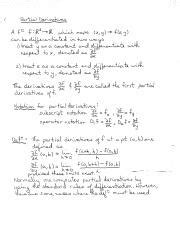 Partial Derivatives
A fⁿ f: ℝ² → ℝ which maps (x,y) → f(x,y)
can be differentiated in two ways
1) treat y as a constant and differentiate with
respect to x, denoted as ∂f/∂x
2) treat x as a constant and differentiate with
respect to y, denoted as ∂f/∂y
The derivatives ∂f/∂x & ∂f/∂y are called the first partial
derivatives of f
Notation for partial derivatives
subscript notation fₓ = ∂f/∂x f_y = ∂f/∂y
operator notation D₁f = ∂f/∂x = fₓ D₂f = ∂f/∂y = f_y
Defⁿ - the partial derivatives of f at a pt (a,b) are
defined as
∂f/∂x (a,b) = lim h→0 f(a+h,b) - f(a,b) / h
∂f/∂y (a,b) = lim h→0 f(a,b+h) - f(a,b) / h
provided these limits exist
Normally one computes partial derivatives by
using the standard rules of differentiation. However,
there are some cases where the defⁿ must be used